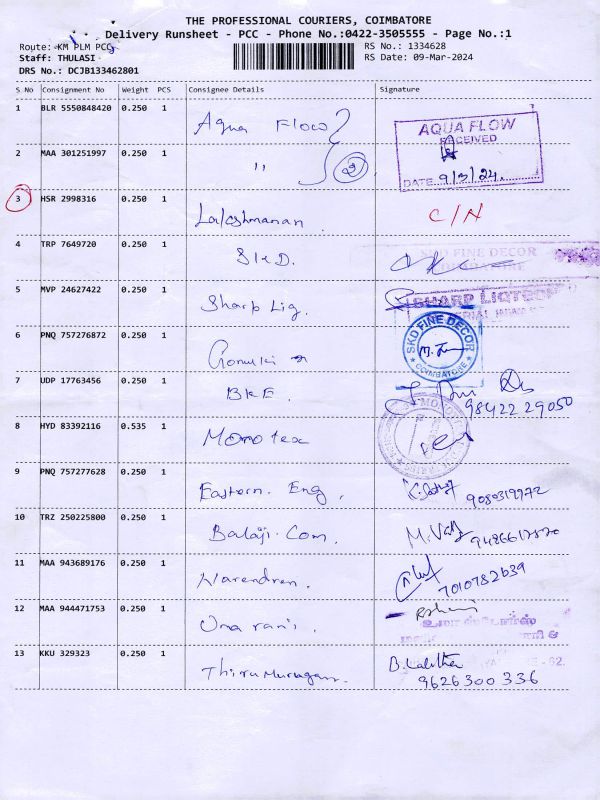 THE PROFESSIONAL COURIERS, COIMBATORE
Delivery Runsheet - PCC - Phone No.:0422-3505555 - Page No.:1
Route: KM PLM PCC
Staff: THULASI
DRS No.: DCJB133462801
RS No.: 1334628
RS Date: 09-Mar-2024
S No Consignment No Weight PCS Consignee Details Signature
1 BLR 5550848420 0.250 1 Aqua Flow
AQUA FLOW
RECEIVED
DATE 9/3/24.
2 MAA 301251997 0.250 1 " 2
3 HSR 2998316 0.250 1 Lakshmanan. C/N
4 TRP 7649720 0.250 1 SKD.
SKD FINE DECOR
5 MVP 24627422 0.250 1 Sharp Liq.
SHARP LIQTECH
6 PNQ 757276872 0.250 1
SKD FINE DECOR
COIMBATORE
7 UDP 17763456 0.250 1 BKE. 98422 29050
8 HYD 83392116 0.535 1 Monotex
9 PNQ 757277628 0.250 1 Eastern. Eng.
10 TRZ 250225800 0.250 1 Balaji. Com.
11 MAA 943689176 0.250 1 Narendren. 7010782639
12 MAA 944471753 0.250 1 Uma rani.
உமா ஸ்டோர்ஸ்
13 KKU 329323 0.250 1 Thiru Murugan. B. Lalitha
9626300336